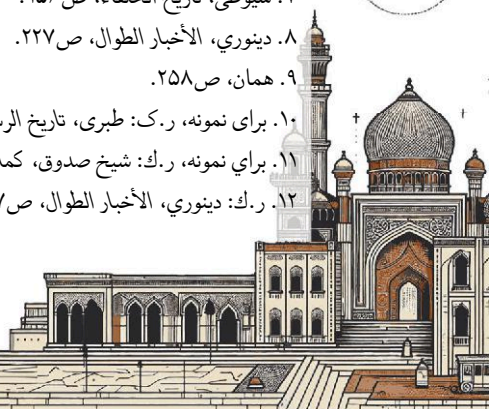 ۸. دينوري، الأخبار الطوال، ص۲۲۷.
۹. همان، ص۲۵۸.
۱۰. برای نمونه، ر.ک: طبری، تاریخ
۱۱. براي نمونه، ر.ك: شيخ صدوق،
۱۲. ر.ك: دينوري، الأخبار الطوال،